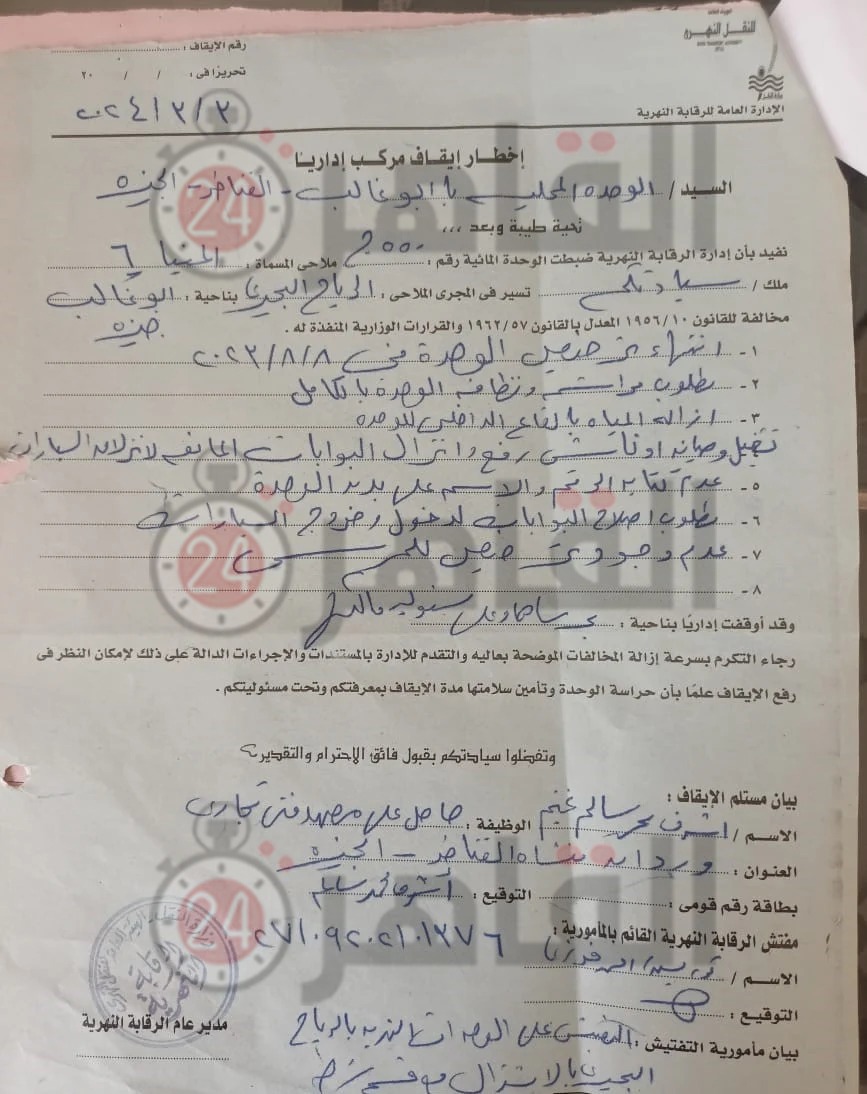 للنقل النهري
الإدارة العامة للرقابة النهرية
رقم الإيقاف :
تحريرًا فى : / / ٢٠
٢٠٢٤/٣/٣
إخطار إيقاف مركب إداريًا
السيد / الوحده المحليه با ابو غالب - القناطر - الجيزه
تحية طيبة وبعد ,,,
نفيد بأن إدارة الرقابة النهرية ضبطت الوحدة المائية رقم : ٥٥٠٠ ملاحى المسماة : المنيا ٦
ملك / سيادتكم تسير فى المجرى الملاحى : الرياح البحيرى بناحية : ابو غالب
جيزه
مخالفة للقانون ١٩٥٦/١٠ المعدل بالقانون ١٩٦٢/٥٧ والقرارات الوزارية المنفذة له .
١- انتهاء ترخيص الوحدة فى ٢٠٢٣/٨/٨
٢- مطلوب ونظافه الوحدة بالكامل
٣- ازاله المياه بالقاع الداخلى للوحده
تشغيل وصيانه اوناش رفع وانزال البوابات لانزلاق السيارات
٥- عدم كتابه الرقم والاسم على بدن الوحدة
٦- مطلوب اصلاح البوابات لدخول وخروج السيارات
٧- عدم وجود ترخيص للمرسى
٨-
وقد أوقفت إداريًا بناحية :
رجاء التكرم بسرعة إزالة المخالفات الموضحة بعاليه والتقدم للإدارة بالمستندات والإجراءات الدالة على ذلك لإمكان النظر فى
رفع الإيقاف علمًا بأن حراسة الوحدة وتأمين سلامتها مدة الإيقاف بمعرفتكم وتحت مسئوليتكم .
وتفضلوا سيادتكم بقبول فائق الاحترام والتقدير ،
بيان مستلم الإيقاف :
الاسم / اشرف محمد سالم غنيم الوظيفة : حاصل على معهد فنى تجارى
العنوان : وردان منشاه القناطر - الجيزه
بطاقة رقم قومى : التوقيع : أشرف محمد سالم
٢٧١٠٩٢٠٢١٠١٣٧٦
مفتش الرقابة النهرية القائم بالمأمورية :
الاسم /
التوقيع :
مدير عام الرقابة النهرية
بيان مأمورية التفتيش : التفتيش على الوحدات النهريه بالرياح
البحيرى بالاشتراك مع قسم شرطه
القاهرة 24
القاهرة 24
القاهرة 24